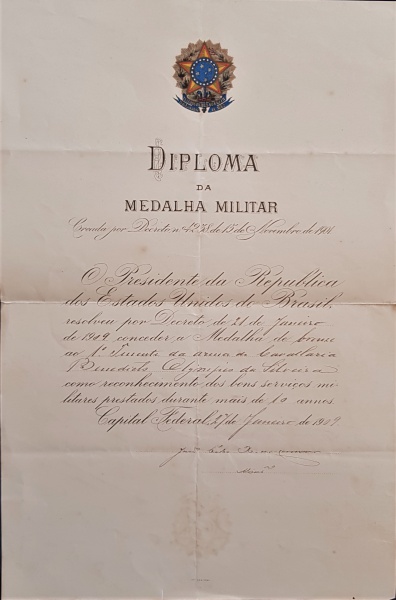 DIPLOMA
DA
MEDALHA MILITAR
Creada por Decreto n. 4238 de 15 de Novembro de 1901
O Presidente da Republica
dos Estados Unidos do Brasil,
resolveu por Decreto de 21 de Janeiro
de 1909 conceder a Medalha de bronze
ao 1º Tenente da arma de Cavallaria
Benedicto Olympio da Silveira
como reconhecimento dos bons serviços mi-
litares prestados durante mais de 10 annos.
Capital Federal, 27 de Janeiro de 1909.